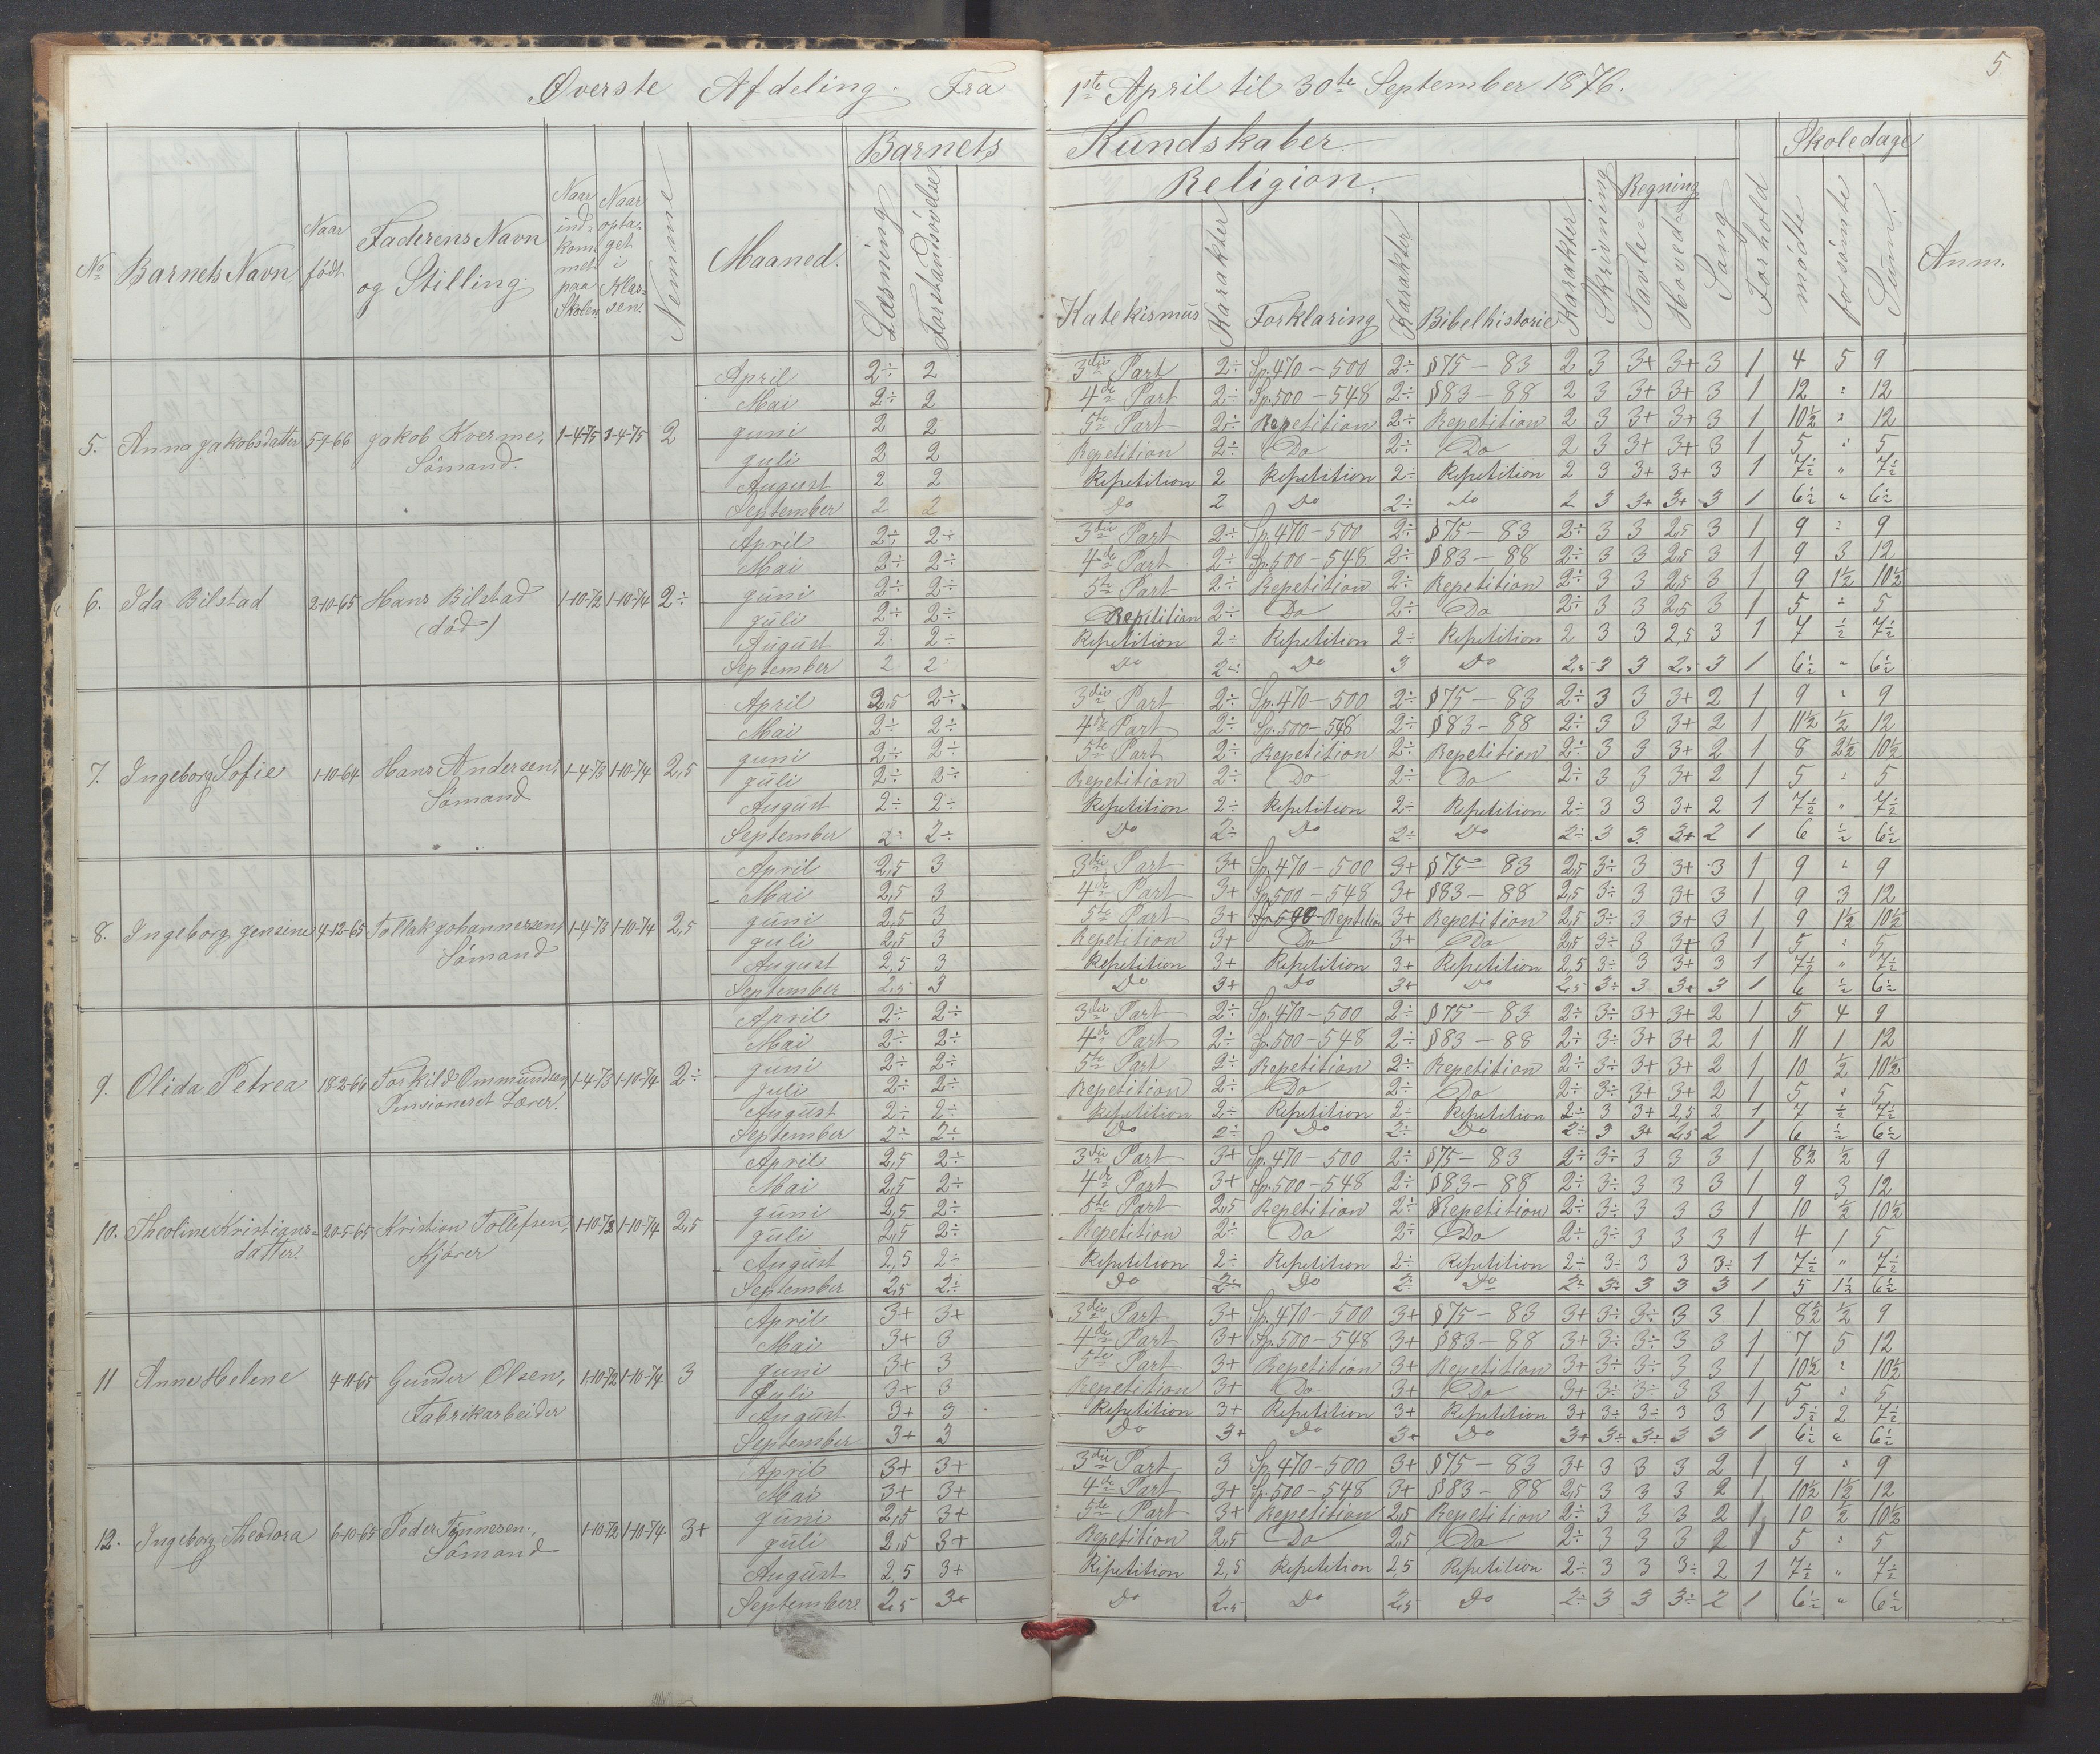 Øverste Afdeling. Fra 1ste April til 30te September 1876.
5.
Barnets Kundskaber. Skoledage
Religion. Regning
No Barnets Navn Naar født Faderens Navn og Stilling Naar indkommet paa Skolen Naar optaget i Klassen. Nemme Maaned. Læsning Forstandsøvelse Katekismus Karakter Forklaring Karakter Bibelhistorie Karakter Skrivning Tavle- Hoved- Sang Forhold mødte forsømte Sum. Anm.
5. Anna Jakobsdatter 5-7-66 Jakob Kverme, Sömand. 1-4-75 1-4-75 2
April 2÷ 2 3die Part 2÷ Sp. 470-500 2÷ §75-83 2 3 3+ 3+ 3 1 4 5 9
Mai 2÷ 2 4de Part 2÷ Sp. 500-548 2÷ §83-88 2 3 3+ 3+ 3 1 12 " 12
Juni 2 2 5te Part 2÷ Repetition 2÷ Repetition 2 3 3+ 3+ 3 1 10½ " 12
Juli 2 2 Repetition 2÷ Do 2÷ Do 2 3 3+ 3+ 3 1 5 " 5
August 2 2 Repetition 2 Repetition 2÷ Repetition 2 3 3+ 3+ 3 1 7½ " 7½
September 2 2 Do 2 Do 2÷ Do 2 3 3+ 3+ 3 1 6½ " 6½
6. Ida Bilstad 2-10-65 Hans Bilstad (död) 1-10-72 1-10-74 2÷
April 2÷ 2÷ 3die Part 2÷ Sp. 470-500 2÷ §75-83 2÷ 3 3 2,5 3 1 9 " 9
Mai 2÷ 2÷ 4de Part 2÷ Sp. 500-548 2÷ §83-88 2÷ 3 3 2,5 3 1 9 3 12
Juni 2÷ 2÷ 5te Part 2÷ Repetition 2÷ Repetition 2÷ 3 3 2,5 3 1 9 1½ 10½
Juli 2÷ 2÷ Repetition 2÷ Do 2÷ Do 2÷ 3 3 2,5 3 1 5 " 5
August 2÷ 2÷ Repetition 2÷ Repetition 2÷ Repetition 2 3 3 2,5 3 1 7 ½ 7½
September 2 2 Do 2÷ Do 3 Do 2,5 3 3 2,5 3 1 6½ " 6½
7. Ingeborg Sofie 1-10-64 Hans Andersen, Sömand 1-4-73 1-10-74 2,5
April 2,5 2÷ 3die Part 2÷ Sp. 470-500 2÷ §75-83 2÷ 3 3 3+ 2 1 9 " 9
Mai 2÷ 2÷ 4de Part 2÷ Sp. 500-548 2÷ §83-88 2÷ 3 3 3+ 2 1 11½ ½ 12
Juni 2÷ 2÷ 5te Part 2÷ Repetition 2÷ Repetition 2÷ 3 3 3+ 2 1 8 2½ 10½
Juli 2÷ 2÷ Repetition 2÷ Do 2÷ Do 2÷ 3 3 3+ 2 1 5 " 5
August 2÷ 2÷ Repetition 2÷ Repetition 2÷ Repetition 2÷ 3 3 3+ 2 1 7½ " 7½
September 2÷ 2÷ Do 2÷ Do 2÷ Do 2÷ 3 3 3+ 2 1 6 ½ 6½
8. Ingeborg Jensine 4-12-65 Tollak Johannessen, Sömand 1-4-73 1-10-74 2,5
April 2,5 3 3die Part 3+ Sp. 470-500 3+ §75-83 2,5 3÷ 3 3+ 3 1 9 " 9
Mai 2,5 3 4de Part 3+ Sp. 500-548 3+ §83-88 2,5 3÷ 3 3+ 3 1 9 3 12
Juni 2,5 3 5te Part 3+ Repetition 3+ Repetition 2,5 3÷ 3 3+ 3 1 9 1½ 10½
Juli 2,5 3 Repetition 3+ Do 3+ Do 2,5 3÷ 3 3+ 3 1 5 " 5
August 2,5 3 Repetition 3+ Repetition 3+ Repetition 2,5 3÷ 3 3+ 3 1 7½ " 7½
September 2,5 3 Do 3+ Do 3+ Do 2,5 3÷ 3 3+ 3 1 6 ½ 6½
9. Olida Petrea 18-2-66 Torkild Ommundsen, Pensioneret Lærer. 1-4-73 1-10-74 2÷
April 2÷ 2÷ 3die Part 2÷ Sp. 470-500 2÷ §75-83 2÷ 3÷ 3+ 3+ 2 1 5 4 9
Mai 2÷ 2÷ 4de Part 2÷ Sp. 500-548 2÷ §83-88 2÷ 3÷ 3+ 3+ 2 1 11 1 12
Juni 2÷ 2÷ 5te Part 2÷ Repetition 2÷ Repetition 2÷ 3÷ 3+ 3+ 2 1 10 ½ 10½
Juli 2÷ 2÷ Repetition 2÷ Do 2÷ Do 2÷ 3÷ 3+ 3+ 2 1 5 " 5
August 2÷ 2÷ Repetition 2÷ Repetition 2÷ Repetition 2÷ 3 3+ 2,5 2 1 7 ½ 7½
September 2÷ 2÷ Do 2÷ Do 2÷ Do 2÷ 3 3+ 2,5 2 1 6 ½ 6½
10. Theoline Kristiansdatter. 20-5-65 Kristian Tollefsen, Kjører 1-10-72 1-10-74 2,5
April 2,5 2÷ 3die Part 3+ Sp. 470-500 2÷ §75-83 2÷ 3÷ 3 3 3 1 8½ ½ 9
Mai 2,5 2÷ 4de Part 3+ Sp. 500-548 2÷ §83-88 2÷ 3÷ 3 3 3 1 9 3 12
Juni 2,5 2÷ 5te Part 2,5 Repetition 2÷ Repetition 2÷ 3÷ 3 3 3 1 10 ½ 10½
Juli 2,5 2÷ Repetition 2÷ Do 2÷ Do 2÷ 3÷ 3 3 3 1 4 1 5
August 2,5 2÷ Repetition 2÷ Repetition 2÷ Repetition 2÷ 3÷ 3 3 3÷ 1 7½ " 7½
September 2,5 2÷ Do 2÷ Do 2÷ Do 2÷ 3÷ 3 3 3 1 5 1½ 6½
11 Anne Helene 4-11-65 Gunder Olsen, Fabrikarbeider 1-10-72 1-10-74 3
April 3+ 3+ 3die Part 3+ Sp. 470-500 3+ §75-83 3+ 3÷ 3÷ 3 3 1 8½ ½ 9
Mai 3+ 3 4de Part 3+ Sp. 500-548 3+ §83-88 3+ 3÷ 3÷ 3 3 1 7 5 12
Juni 3+ 3 5te Part 3+ Repetition 3+ Repetition 3+ 3÷ 3÷ 3 3 1 10½ " 10½
Juli 3+ 3 Repetition 3+ Do 3+ Do 3+ 3÷ 3÷ 3 3 1 5 " 5
August 3+ 3 Repetition 3+ Repetition 3+ Repetition 3+ 3÷ 3÷ 3 3 1 5½ 2 7½
September 3+ 3 Do 3+ Do 3+ Do 3+ 3÷ 3÷ 3 3 1 6½ " 6½
12. Ingeborg Theodora 6-10-65 Peder Tönnesen, Sömand 1-10-72 1-10-74 3+
April 3+ 3+ 3die Part 3 Sp. 470-500 3+ §75-83 3+ 3 3 3 2 1 9 " 9
Mai 3+ 3+ 4de Part 3+ Sp. 500-548 3+ §83-88 2,5 3 3 3 2 1 10½ 1½ 12
Juni 2,5 3+ 5te Part 3+ Repetition 2,5 Repetition 2÷ 3 3 3 2 1 10 ½ 10½
Juli 2,5 3+ Repetition 2,5 Do 2,5 Do 2÷ 3 3 3 2 1 5 " 5
August 2,5 3+ Repetition 2,5 Repetition 2,5 Repetition 2÷ 3 3 3÷ 2 1 7½ " 7½
September 2,5 3+ Do 2,5 Do 2,5 Do 2÷ 3 3 3÷ 2 1 6½ " 6½